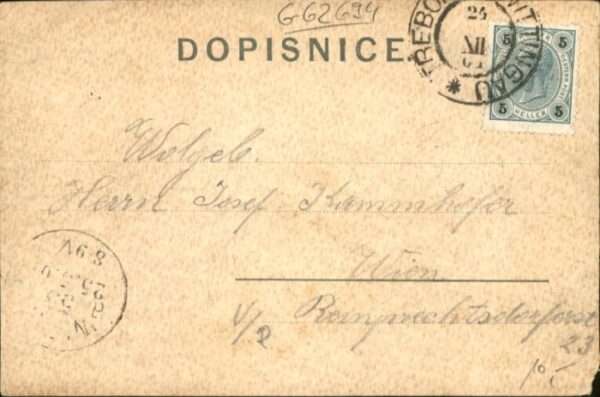 G62694
DOPISNICE.
TREBO WITTINGAU
24
XII
01
5 5
5 HELLER 5
Wolgeb.
Herrn Josef Kammhofer
Wien
V/2 Ramprechtsdorferst
23
10,-